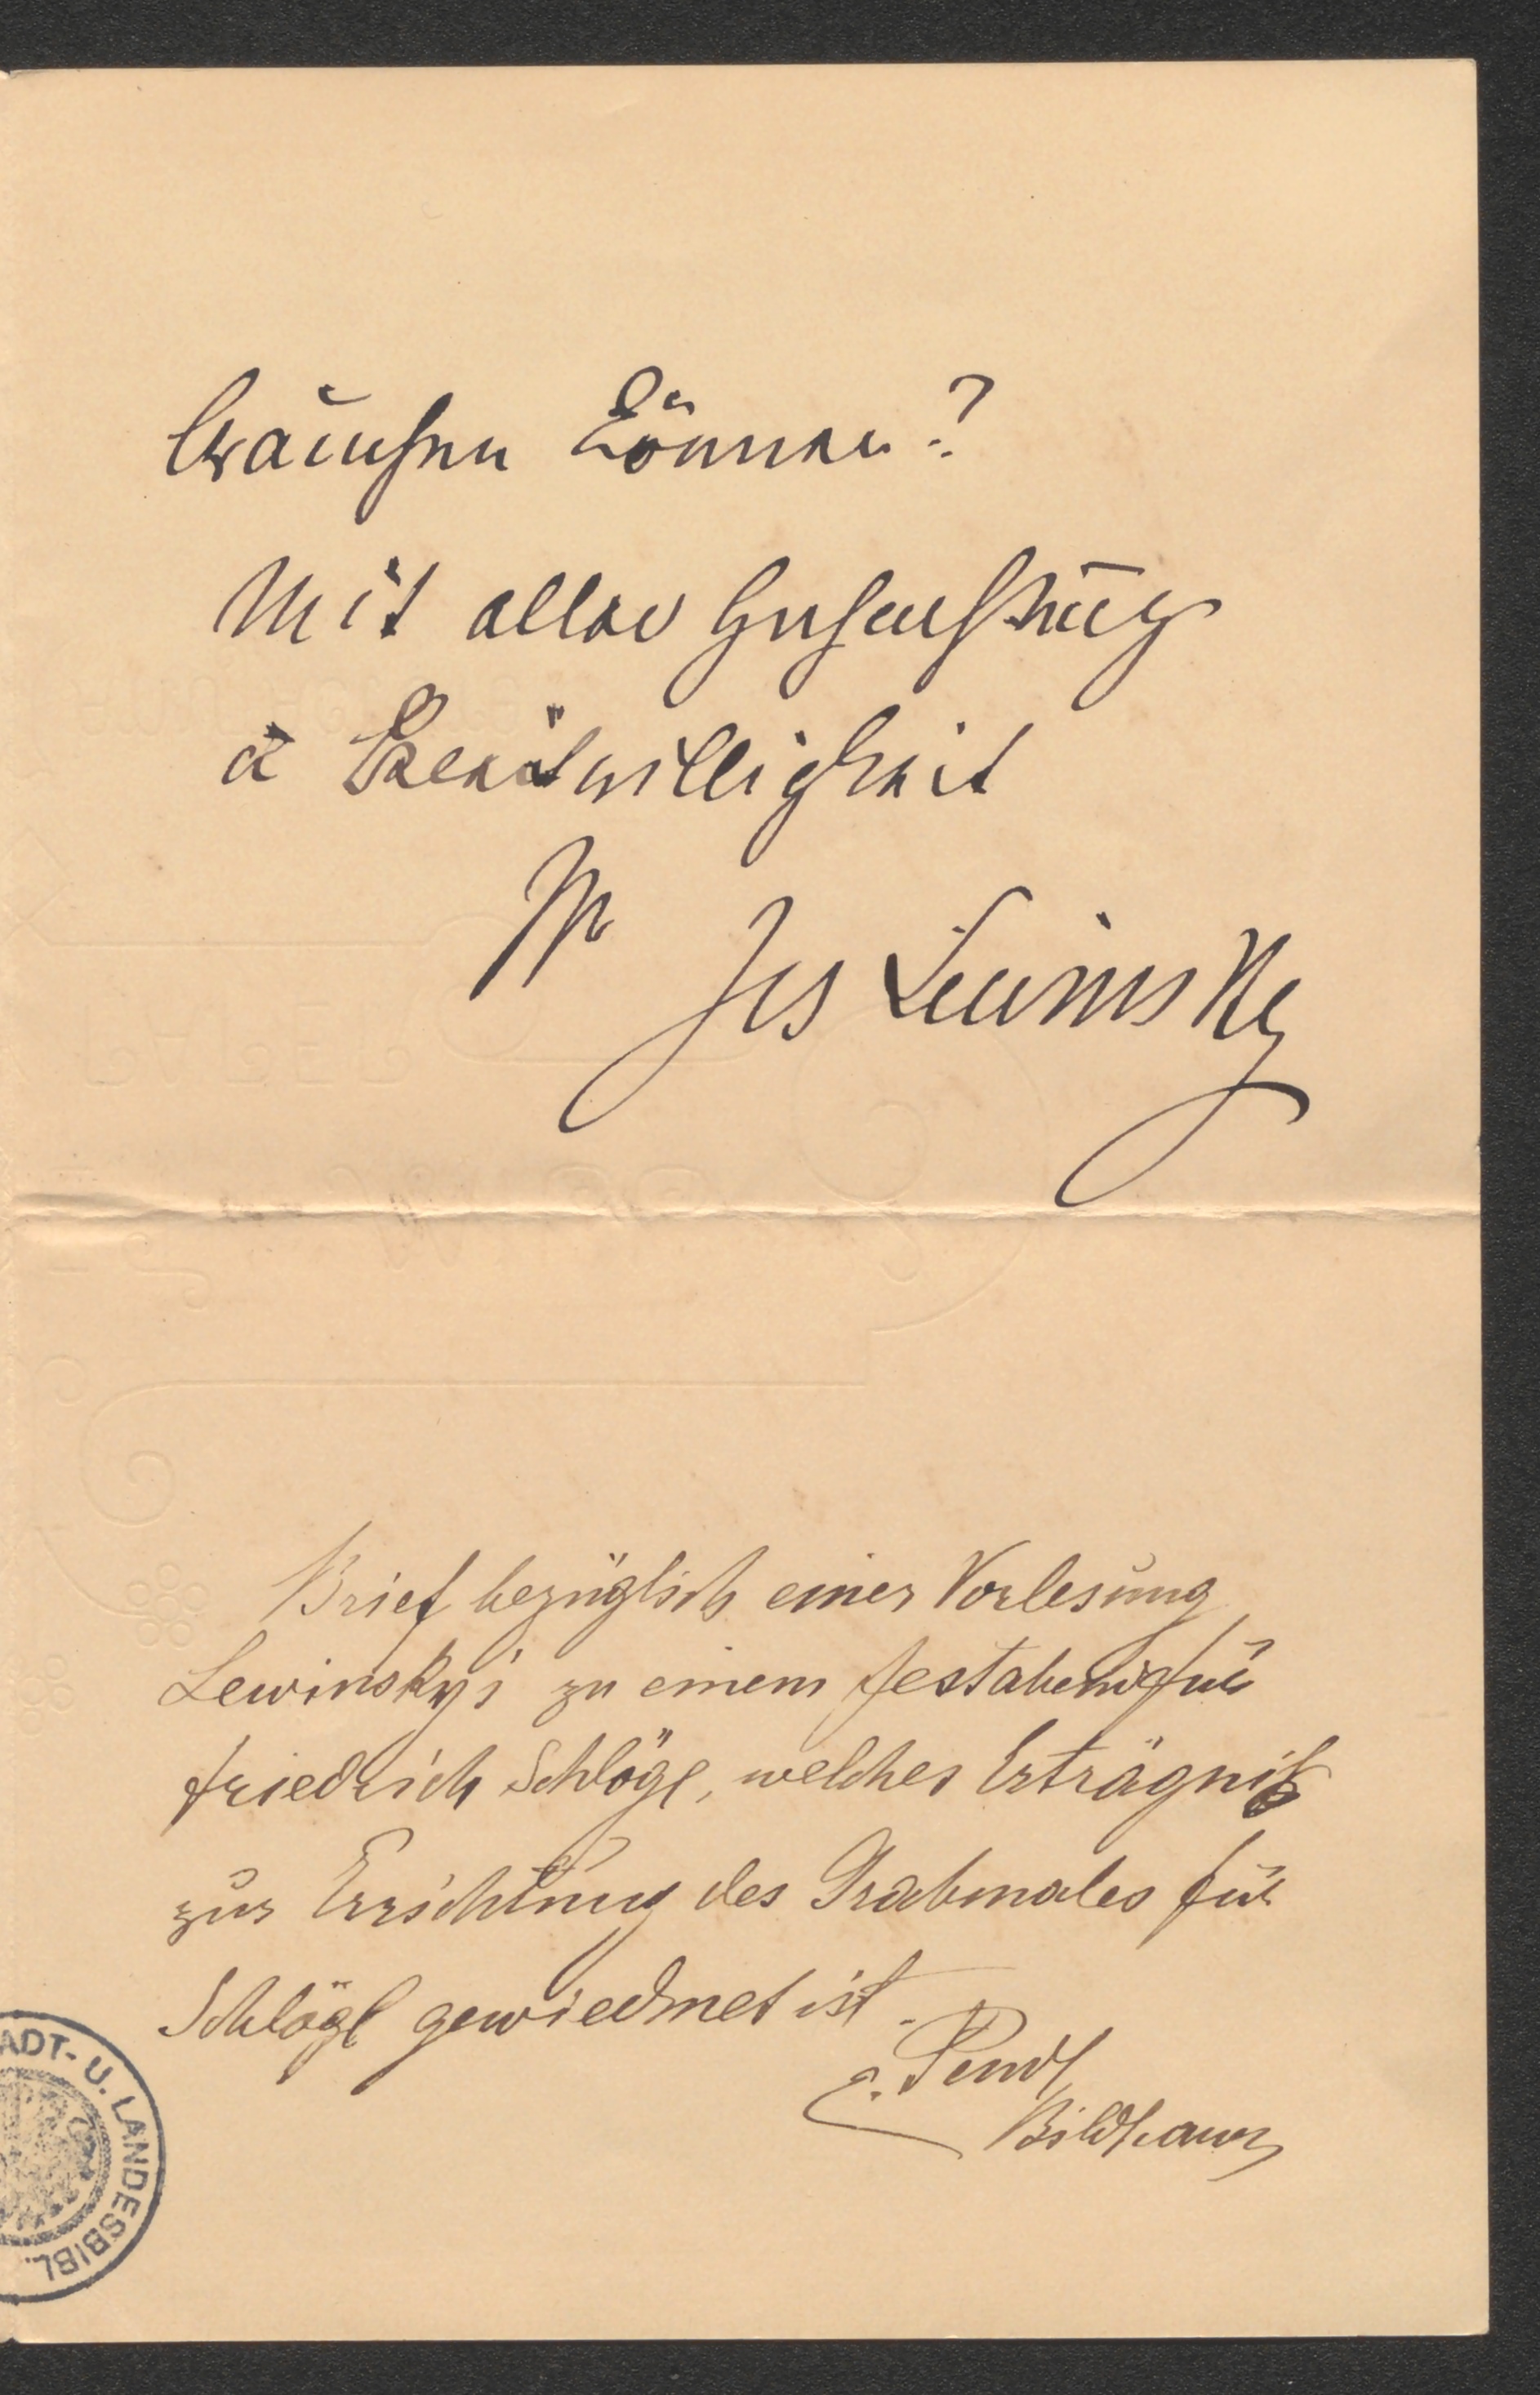 brauchen können?
Mit aller Hochachtung
u Bereitwilligkeit
Ihr Jos Lewinsky
Brief bezüglich einer Vorlesung
Lewinsky's zu einem Festabend für
Friedrich Schlögl, welches Erträgniß
zur Errichtung des Grabmales für
Schlögl gewiedmet ist.
E. Pendl
Bildhauer
ADT- U. LANDESBIBL.